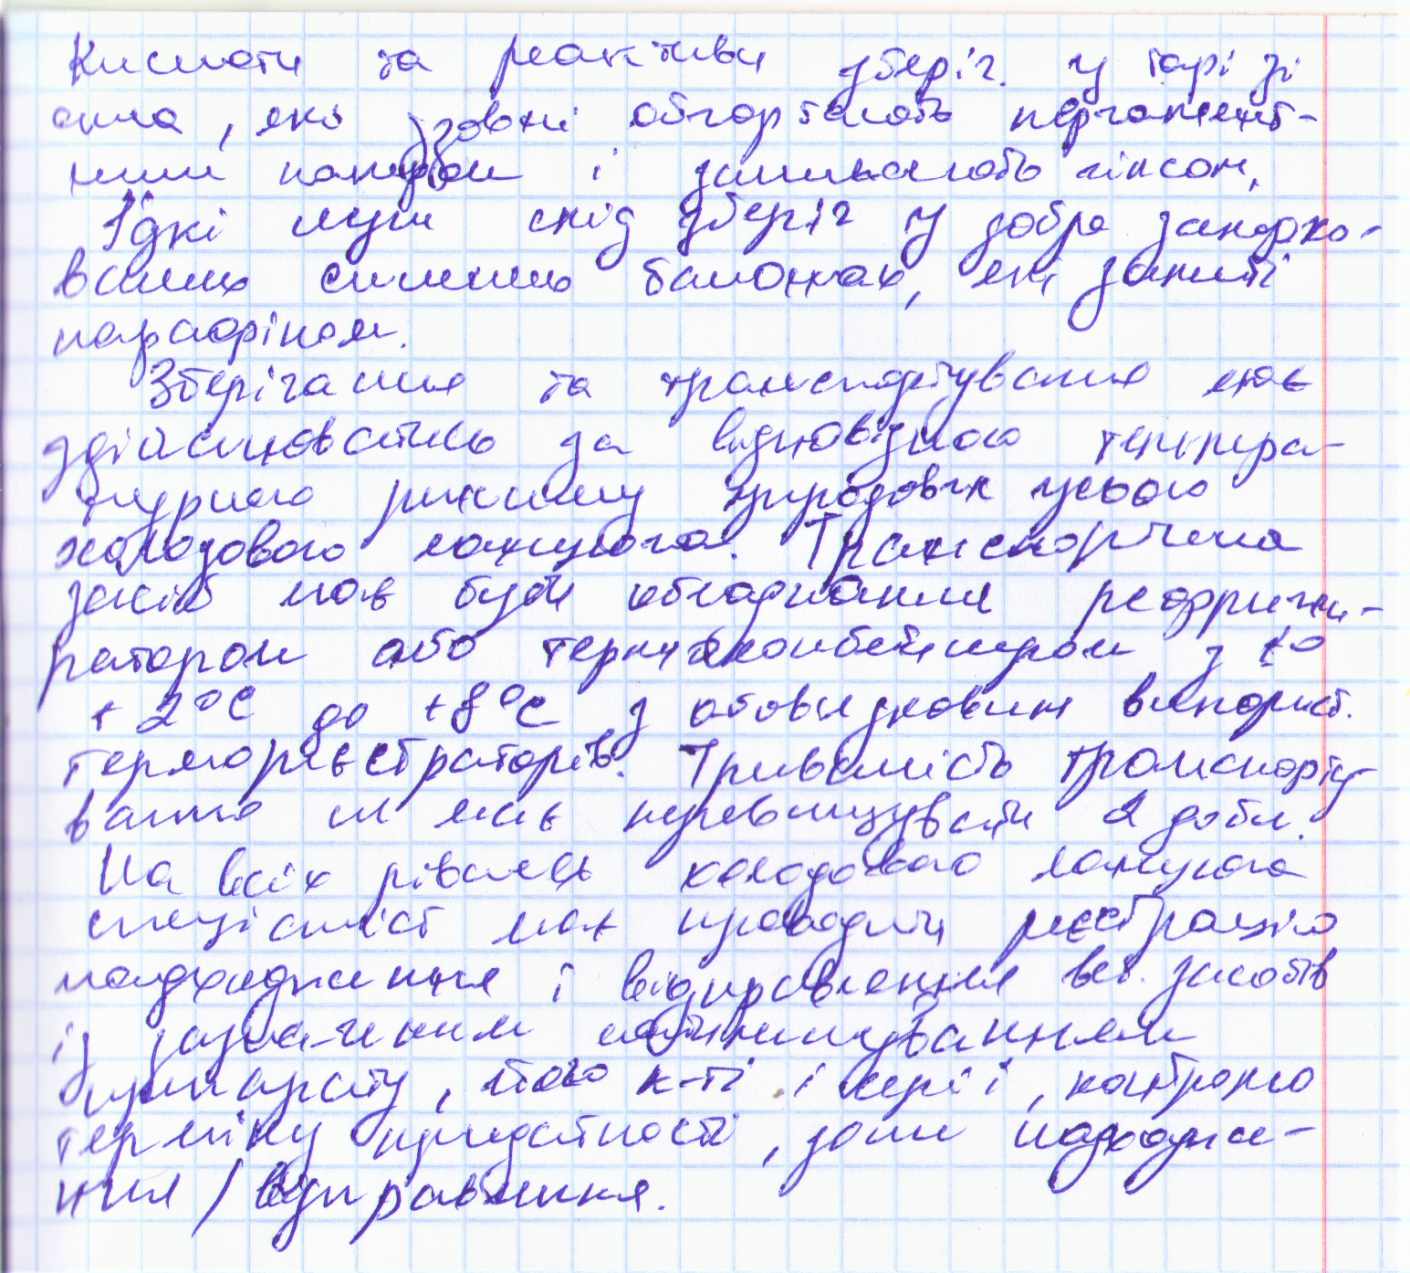 Кислоти та реактиви зберіг. у тарі зі
скла, які ззовні обгортають пергамент-
ним папером і заливають гіпсом.
Їдкі луги слід зберіг у добре закорко-
ваних скляних балонах, які залиті
парафіном.
Зберігання та транспортування має
здійснюватись за відповідного темпера-
турного режиму упродовж усього
холодового ланцюга. Транспортний
засіб має бути обладнаний рефриже-
ратором або термоконтейнером з t°
+2°С до +8°С з обов'язковим використ.
термореєстраторів. Тривалість транспорту
вання не має перевищувати 2 доби.
На всіх рівнях холодового ланцюга
спеціаліст має проводити реєстрацію
надходження і відправлення вет. засобів
із зазначенням найменуванням
препарату, його к-ті і серії, контролю
терміну придатності, дати надходже-
ння / відправлення.